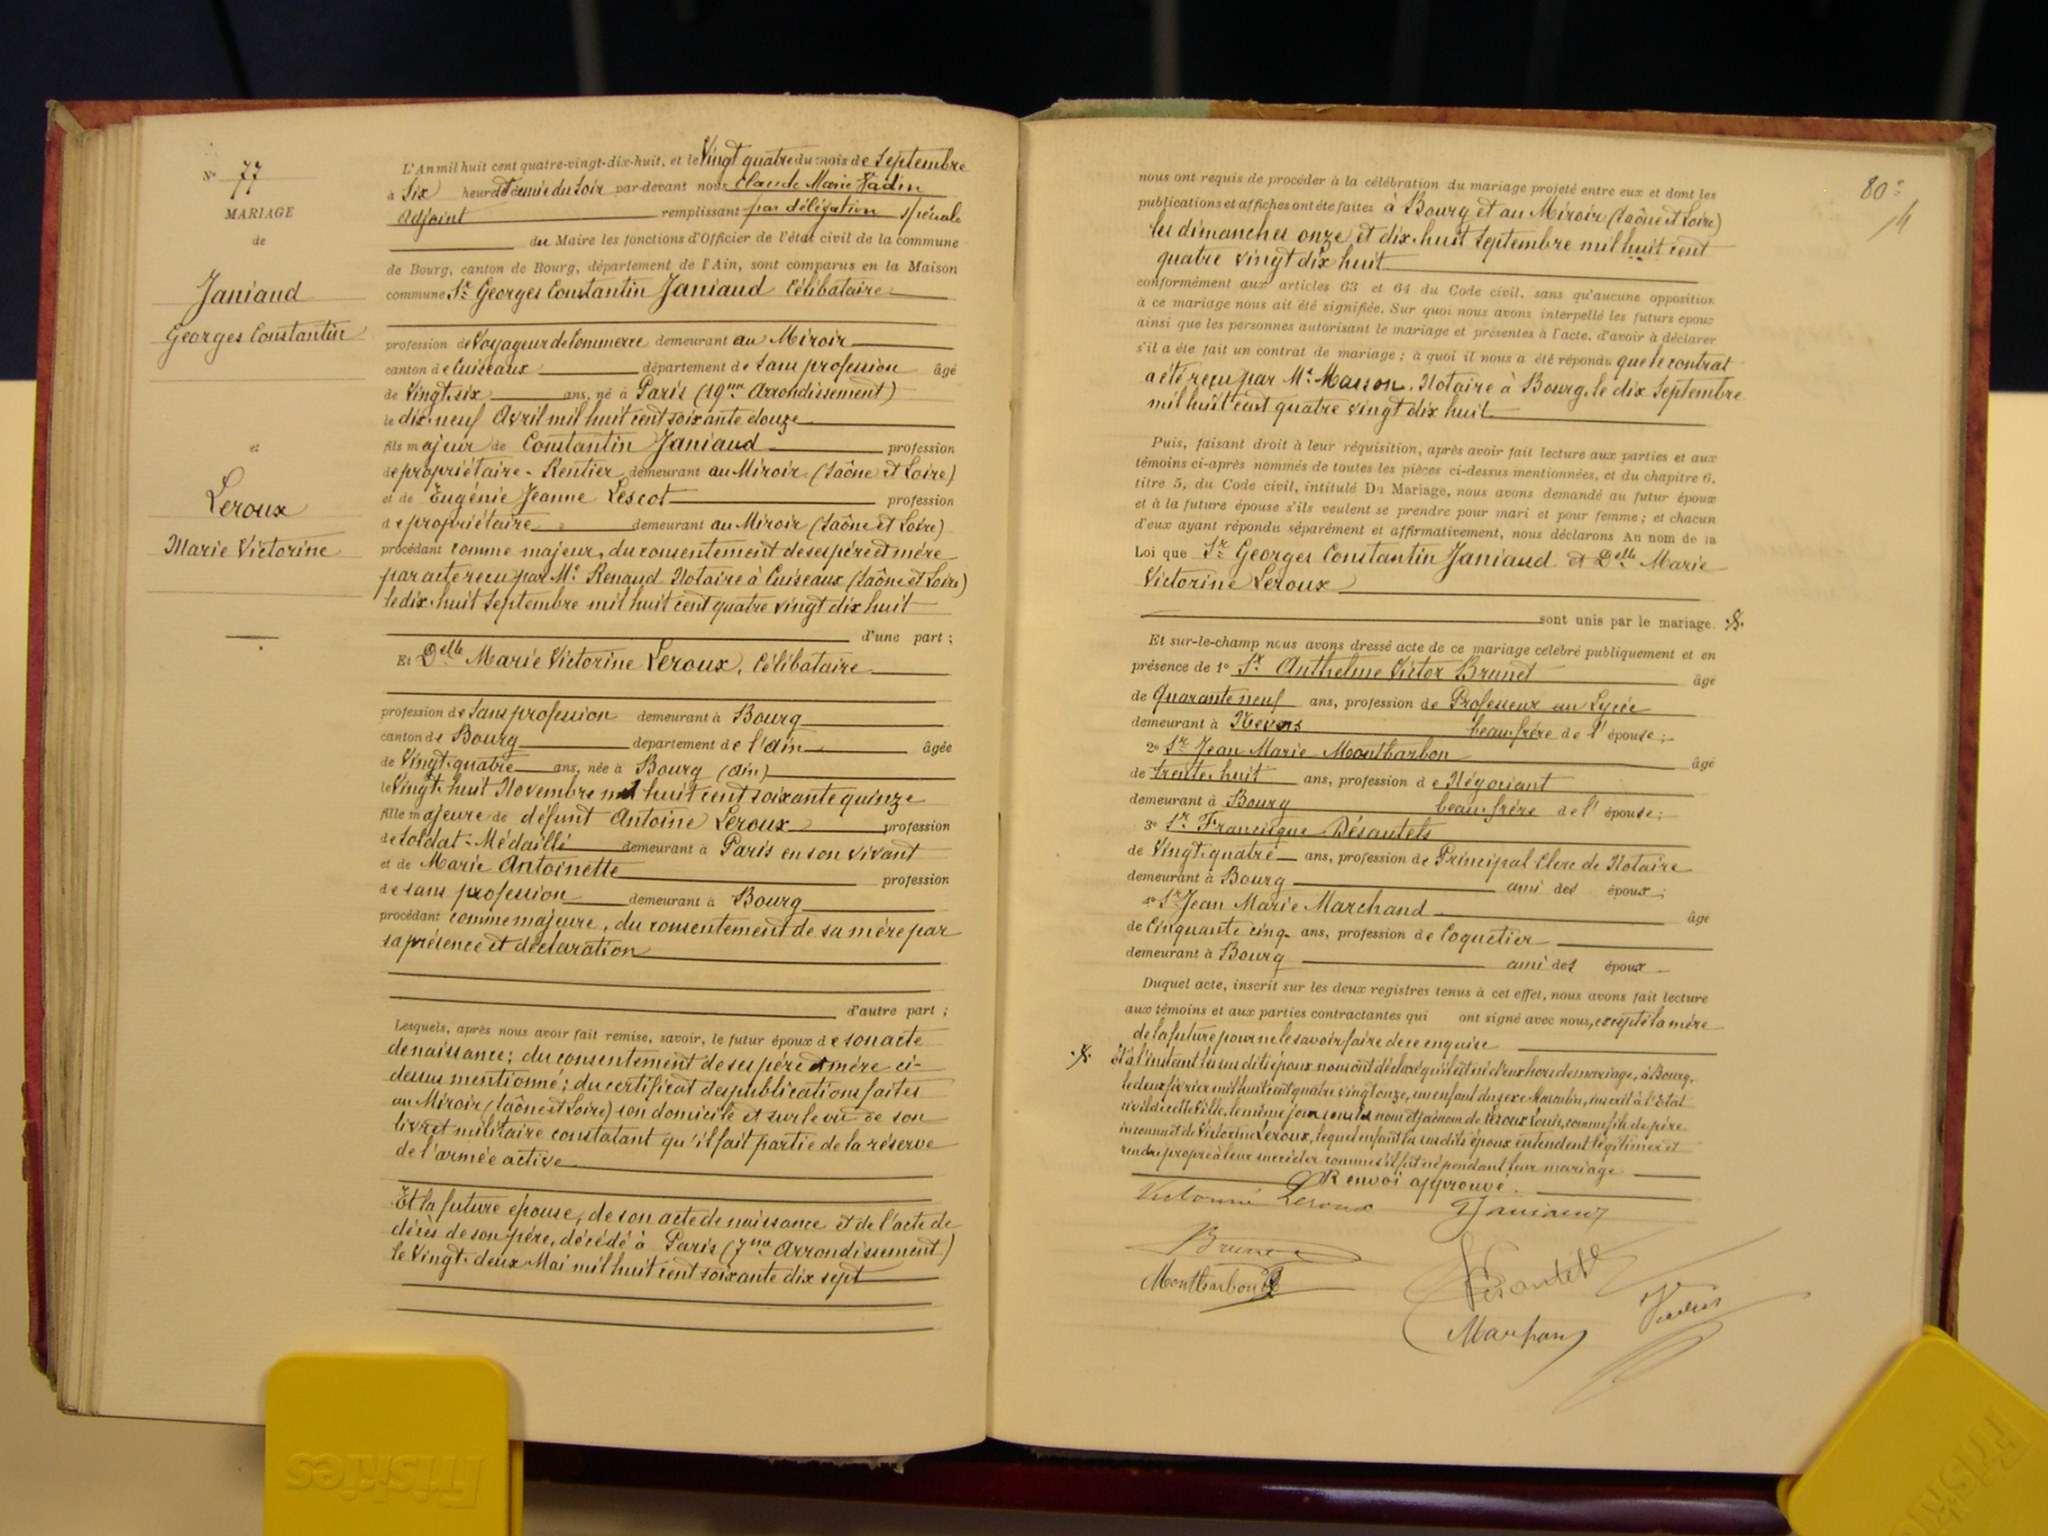 N° 77
MARIAGE
de
Janiaud
Georges Constantin
et
Leroux
Marie Victorine
L'An mil huit cent quatre-vingt-dix-huit, et le Vingt quatre du mois de Septembre
à Six heures du soir par-devant nous Claude Marie Vadin
Adjoint remplissant par délégation spéciale
du Maire les fonctions d'Officier de l'état civil de la commune
de Bourg, canton de Bourg, département de l'Ain, sont comparus en la Maison
commune Sr Georges Constantin Janiaud Célibataire
profession de Voyageur de Commerce demeurant au Miroir
canton de Cuiseaux département de Sans profession âgé
de Vingt-six ans, né à Paris (19me Arrondissement)
le dix-neuf Avril mil huit cent soixante douze
fils majeur de Constantin Janiaud profession
de propriétaire-Rentier demeurant au Miroir (Saône et Loire)
et de Eugénie Jeanne Lescot profession
de propriétaire demeurant au Miroir (Saône et Loire)
procédant comme majeur, du consentement de ses père et mère
par acte reçu par Me Renaud Notaire à Cuiseaux (Saône et Loire)
le dix-huit Septembre mil huit cent quatre vingt dix huit
d'une part;
Et Delle Marie Victorine Leroux, Célibataire
profession de Sans profession demeurant à Bourg
canton de Bourg département de l'Ain âgée
de Vingt-quatre ans, née à Bourg (Ain)
le Vingt-huit Novembre mil huit cent soixante quinze
fille majeure de défunt Antoine Leroux profession
de Soldat-Médaillé demeurant à Paris en son vivant
et de Marie Antoinette profession
de sans profession demeurant à Bourg
procédant comme majeure, du consentement de sa mère par
sa présence et déclaration
d'autre part;
Lesquels, après nous avoir fait remise, savoir, le futur époux de son acte
de naissance; du consentement de ses père et mère ci-
dessus mentionné; du certificat des publications faites
au Miroir (Saône et Loire) son domicile et sur le vu de son
livret militaire constatant qu'il fait partie de la réserve
de l'armée active
Et la future épouse, de son acte de naissance et de l'acte de
décès de son père, décédé à Paris (7me Arrondissement)
le Vingt-deux Mai mil huit cent soixante dix sept
80e
nous ont requis de procéder à la célébration du mariage projeté entre eux et dont les
publications et affiches ont été faites à Bourg et au Miroir (Saône et Loire)
les dimanches onze et dix-huit Septembre mil huit cent
quatre vingt dix huit
conformément aux articles 63 et 64 du Code civil, sans qu'aucune opposition
à ce mariage nous ait été signifiée. Sur quoi nous avons interpellé les futurs époux
ainsi que les personnes autorisant le mariage et présentes à l'acte, d'avoir à déclarer
s'il a été fait un contrat de mariage; à quoi il nous a été répondu que le contrat
a été reçu par Me Masson, Notaire à Bourg, le dix Septembre
mil huit cent quatre vingt dix huit
Puis, faisant droit à leur réquisition, après avoir fait lecture aux parties et aux
témoins ci-après nommés de toutes les pièces ci-dessus mentionnées, et du chapitre 6,
titre 5, du Code civil, intitulé Du Mariage, nous avons demandé au futur époux
et à la future épouse s'ils veulent se prendre pour mari et pour femme; et chacun
d'eux ayant répondu séparément et affirmativement, nous déclarons Au nom de la
Loi que Sr Georges Constantin Janiaud et Delle Marie
Victorine Leroux
sont unis par le mariage.
Et sur-le-champ nous avons dressé acte de ce mariage célébré publiquement et en
présence de 1° Sr Anthelme Victor Brunet âgé
de Quarante neuf ans, profession de Professeur au Lycée
demeurant à Nevers beau-frère de l'épouse;
2° Sr Jean Marie Montbarbon âgé
de trente-huit ans, profession de Négociant
demeurant à Bourg beau-frère de l'épouse;
3° Sr Francisque Désautels
de Vingt-quatre ans, profession de Principal Clerc de Notaire
demeurant à Bourg ami des époux;
4° Sr Jean Marie Marchand âgé
de Cinquante cinq ans, profession de Coquetier
demeurant à Bourg ami des époux
Duquel acte, inscrit sur les deux registres tenus à cet effet, nous avons fait lecture
aux témoins et aux parties contractantes qui ont signé avec nous, excepté la mère
de la future pour ne le savoir faire de ce enquise
Et à l'instant les susdits époux nous ont déclaré qu'il est né d'eux hors de mariage, à Bourg,
le deux février mil huit cent quatre vingt onze, un enfant du sexe Masculin, inscrit à l'Etat
civil de cette Ville, le même jour sous les nom et prénom de Leroux Louis, comme fils de père
inconnu et de Victorine Leroux, lequel enfant les susdits époux entendent légitimer et
rendre propre à leur succéder comme s'il fût né pendant leur mariage
Renvoi approuvé.
Victorine Leroux
G Janiaud
Brunet
Montbarbon
Désautels
Marchand
Vadin
Friskies
Friskies